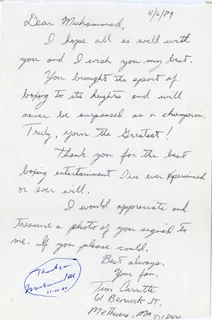 11/6/89
Dear Muhammad,
I hope all is well with
you and I wish you my best.
You brought the sport of
boxing to its heights and will
never be surpassed as a champion.
Truly, your the Greatest!
Thank you for the best
boxing entertainment I've ever experienced
or ever will.
I would appreciate and
treasure a photo of you signed to
me. If you please could.
Best always.
Your fan.
Tim
61 Berwick St.
Methuen, Ma
Thanks